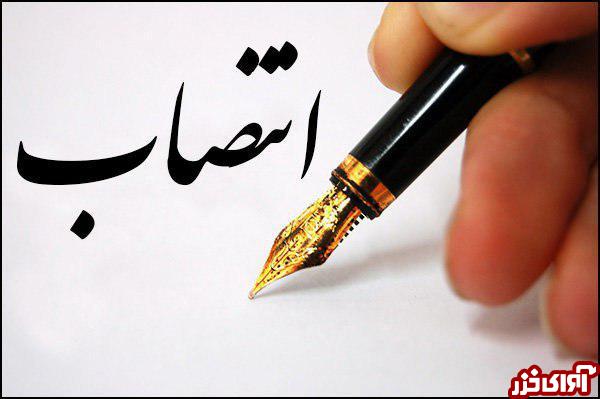 انتصاب
آوای خزر